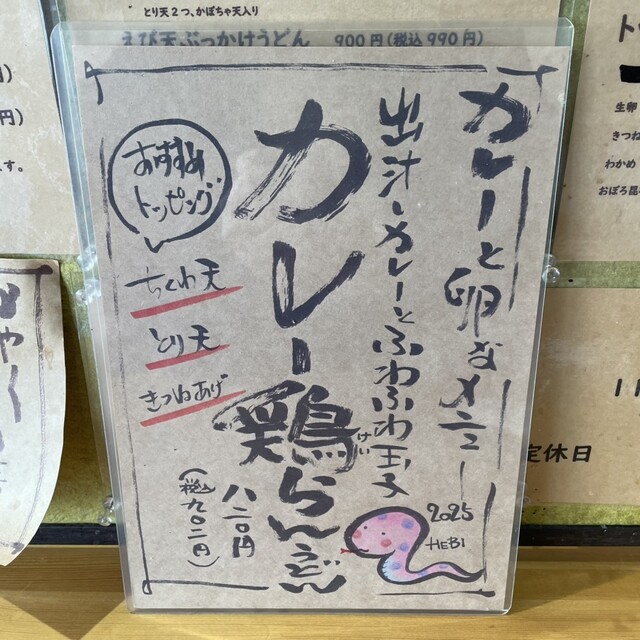 とり天2つ、かぼちゃ天入り
えび天ぶっかけうどん 900円(税込990円)
カレーと卵なメニュー
出汁カレーとふわふわ玉子
カレー鶏らんうどん
けい
八二〇円
(税込九〇二円)
おすすめ
トッピング
ちくわ天
とり天
きつねあげ
2025
HEBI
生卵
きつね
わかめ
おぼろ昆
定休日